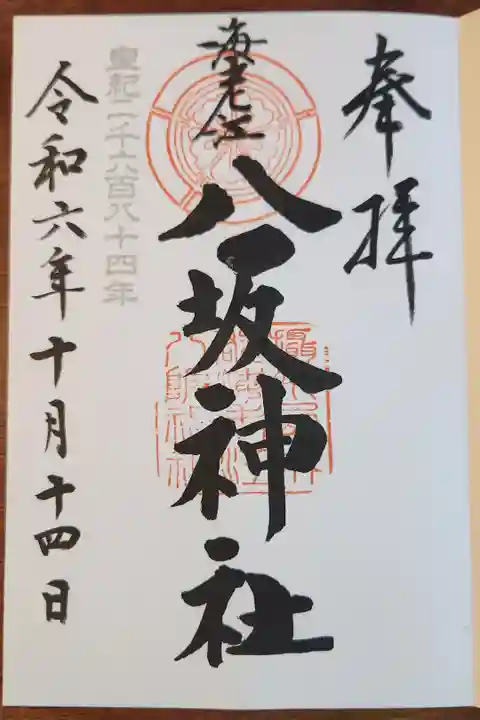 奉拝
海老江
八坂神社
皇紀二千六百八十四年
令和六年十月十四日